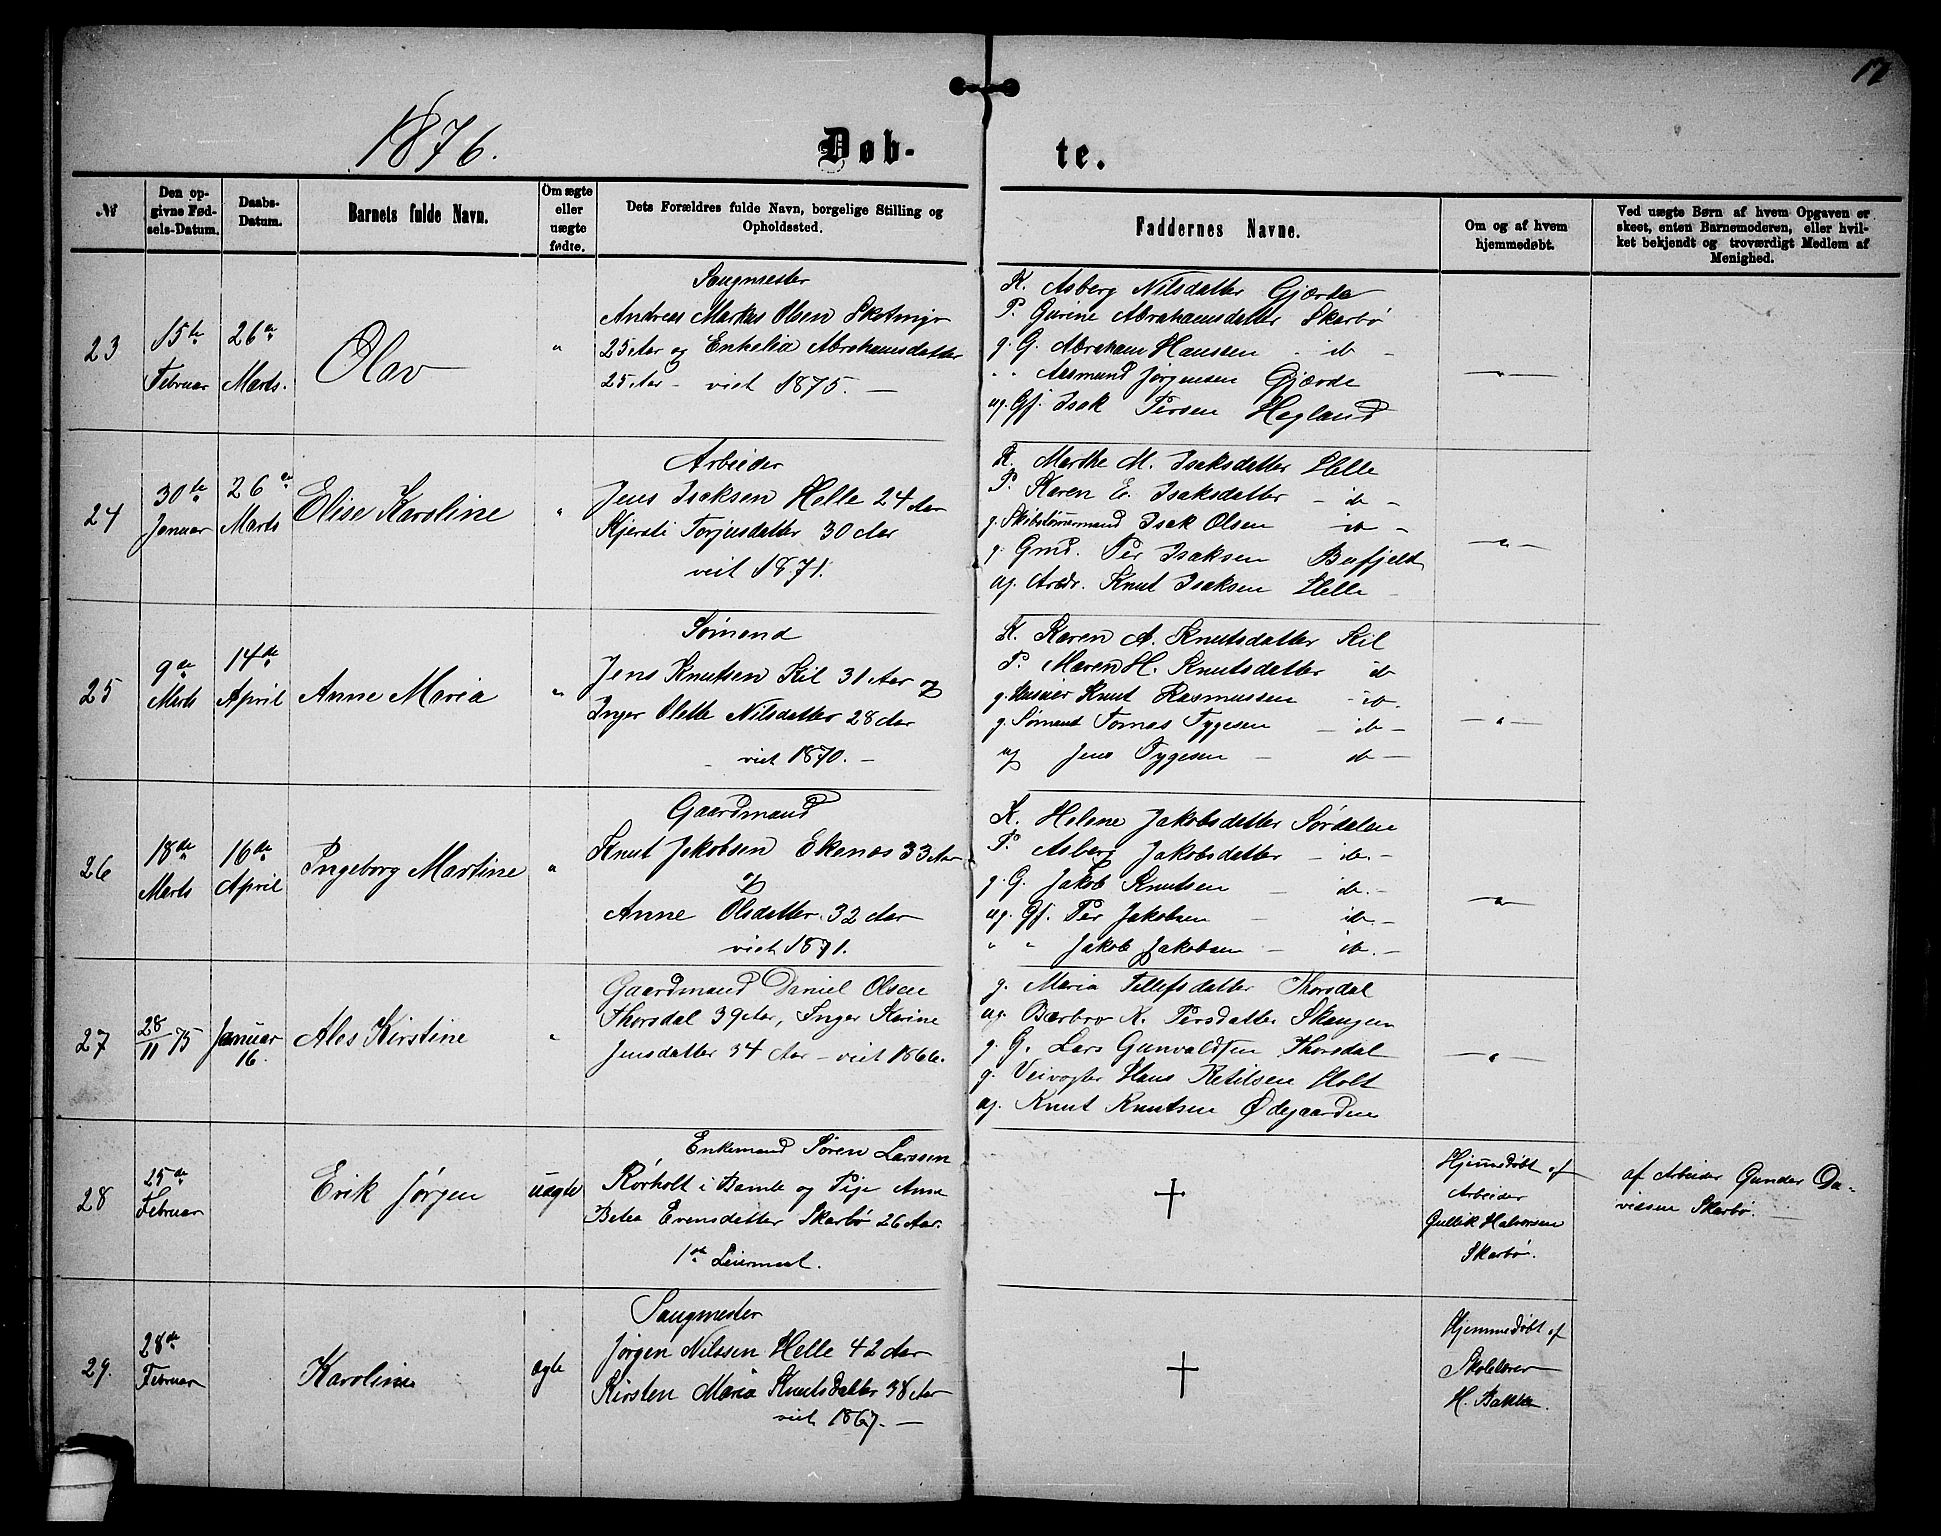 17
1876.
Døb- te.
№
Den op-
givne Fød-
sels-Datum.
Daabs-
Datum.
Barnets fulde Navn.
Om ægte
eller
uægte
fødte.
Dets Forældres fulde Navn, borgelige Stilling og
Opholdssted.
Faddernes Navne.
Om og af hvem
hjemmedøbt.
Ved uægte Børn af hvem Opgaven er
skeet, enten Barnemoderen, eller hvil-
ket bekjendt og troværdigt Medlem af
Menighed.
23
15de
Februar
26de
Marts.
Olav
"
Saugmester
Andreas Markus Olsen
25 Aar og Enkelia Abrahamsdatter
25 Aar - viet 1875. —
K. Asberg Nilsdatter Gjærde
P. Gurine Abrahamsdatter Skarbø
g. G. Abraham Hanssen - ib -
" " Aasmund Jørgensen Gjærde
ug. Gf. Isak Persen Hegland
— " —
24
30te
Januar
26de
Marts
Elise Karoline
"
Arbeider
Jens Isaksen Helle 24 Aar
Kjersti Torjusdatter 30 Aar
viet 1871.
K. Marthe M. Isaksdatter Helle
P. Karen E. Isaksdatter - ib -
g. Skibstømermand Isak Olsen ib -
g. Gmd. Per Isaksen Bufjeld
ug. Arbdr. Knut Isaksen Helle
— " —
25
9de
Marts
14de
April
Anne Maria
"
Sømand
Jens Knutsen Kil 31 Aar og
Inger Olette Nilsdatter 28 Aar
- viet 1870. -
K. Karen A. Knutsdatter Kil
P. Maren H. Knutsdatter ib
g. Knut Rasmussen - ib -
g. Sømand Tomas Tygesen - ib -
ug Jens Tygesen - ib -
— " —
26
18de
Marts
16de
April
Ingeborg Martine
"
Gaardmand
Knut Jakobsen Ekenæs 33 Aar
og
Anne Olsdatter 32 Aar
viet 1871.
K. Helene Jakobsdatter Sørdalen
P. Asberg Jakobsdatter - ib. -
g. G. Jakob Knutsen - ib. -
ug. Gf. Per Jakobsen - ib -
" " Jakob Jakobsen - ib. -
— " —
27
28/11 75
Januar
16.
Ales Kirstine
"
Gaardmand Daniel Olsen
Thorsdal 39 Aar, Inger Karine
Jensdatter 34 Aar - viet 1866.
g. Maria Tellefsdatter Thorsdal
ug. Barbro K. Persdatter Skaugen
g. G. Lars Gunvaldsen Thorsdal
g. Veivogter Hans Ketilsen Holt
ug. Knut Knutsen Ødegaarden
— " —
28
25de
Februar
Erik Jørgen
uægte
Enkemand Søren Larssen
Rørholt i Bamle og Pige Anne
Betea Evensdatter Skarbø 26 Aar.
1ste Leiermaal.
†
Hjemmedøbt af
Arbeider
Gullik Halvorsen
Skarbø.
af Arbeider Gunder Da-
vidsen Skarbø. —
29.
28de
Februar
Karoline
ægte
Saugmester
Jørgen Nilssen Helle 42 Aar
Kirsten Maria Knutsdatter 38 Aar
viet 1867. —
†
Hjemmedøbt af
Skolelærer
H. Bakken.